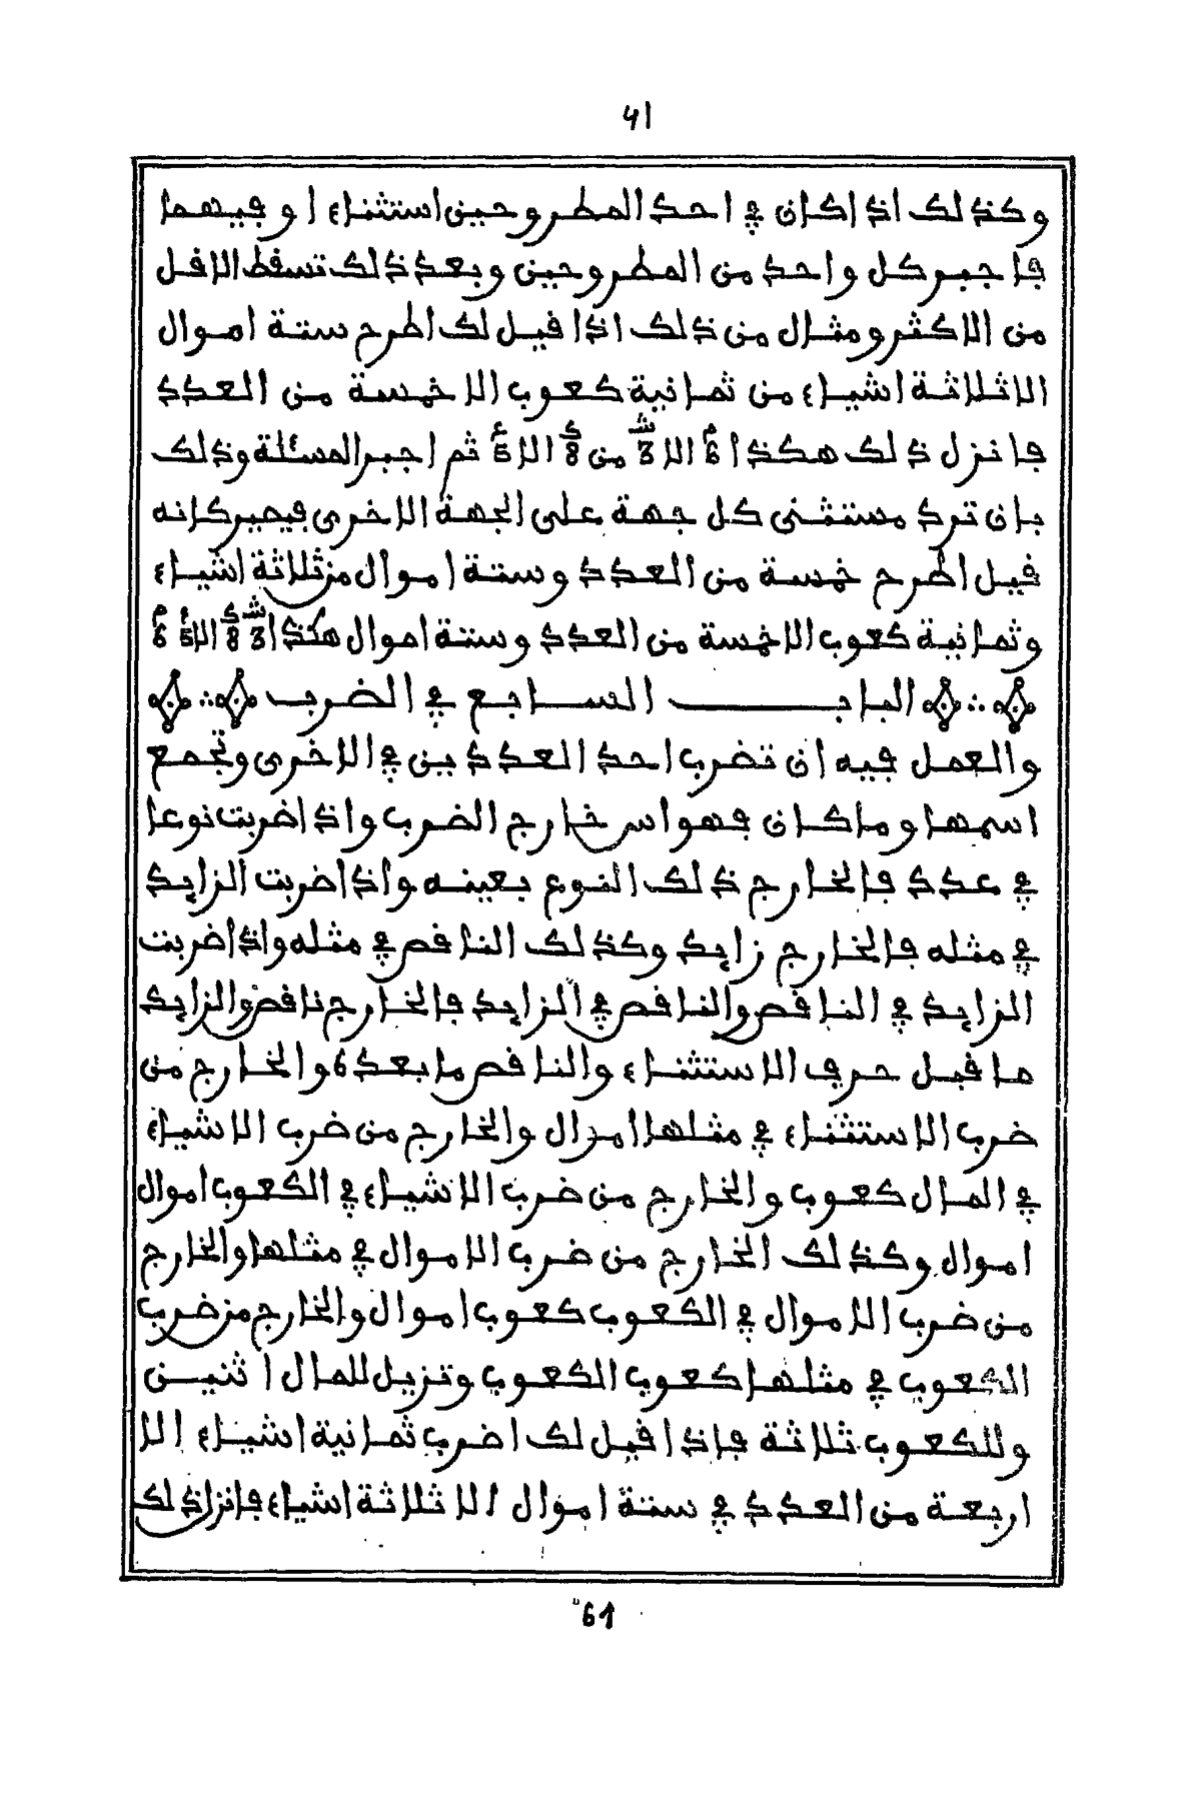 41
وكذلك اذا كان في احد المطروحين استثناء او فيهما
فاجبر كل واحد من المطروحين وبعد ذلك تسقط الاقل
من الاكثر ومثال من ذلك اذا قيل لك اطرح ستة اموال
الا ثلاثة اشياء من ثمانية كعوب الا خمسة من العدد
فانزل ذلك هكذا 6م الا 3ش من 8ك الا 5ع ثم اجبر المسئلة وذلك
بان ترد مستثنى كل جهة على الجهة الاخرى فيصير كانه
قيل اطرح خمسة من العدد وستة اموال من ثلاثة اشياء
وثمانية كعوب الا خمسة من العدد وستة اموال هكذا 3ش 8ك الا 5ع 6م
الباب السابع في الضرب
والعمل فيه ان تضرب احد العددين في الاخرى وتجمع
اسمها وما كان فهو اس خارج الضرب واذا ضربت نوعا
في عدد فالخارج ذلك النوع بعينه واذا ضربت الزايد
في مثله فالخارج زايد وكذلك الناقص في مثله واذا ضربت
الزايد في الناقص والناقص في الزايد فالخارج ناقص والزايد
ما قبل حرف الاستثناء والناقص ما بعده والخارج من
ضرب الاستثناء في مثلها اموال والخارج من ضرب الاشياء
في المال كعوب والخارج من ضرب الاشياء في الكعوب اموال
اموال وكذلك الخارج من ضرب الاموال في مثلها والخارج
من ضرب الاموال في الكعوب كعوب اموال والخارج من ضرب
الكعوب في مثلها كعوب الكعوب وتزيل للمال اثنين
وللكعوب ثلاثة فاذا قيل لك اضرب ثمانية اشياء الا
اربعة من العدد في ستة اموال الا ثلاثة اشياء فانزل ذلك
61